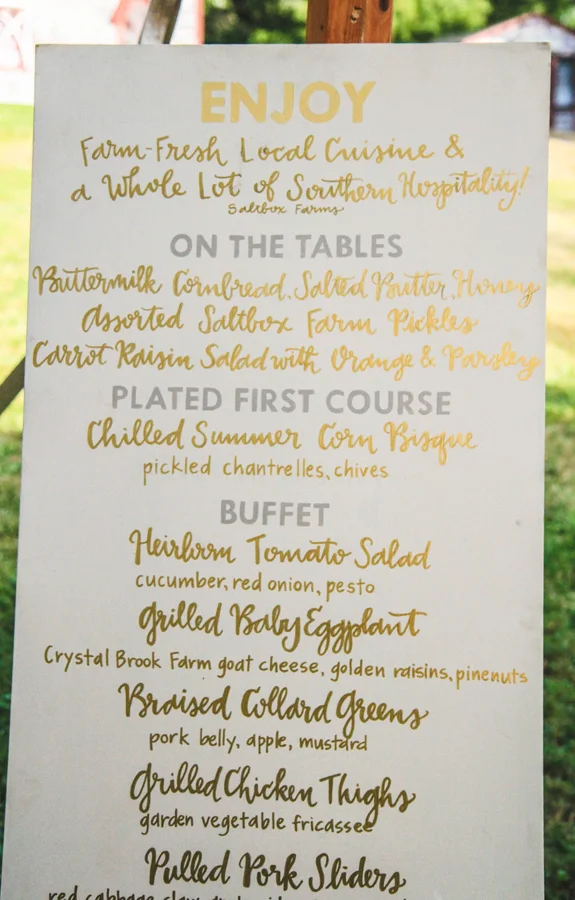 ENJOY
Farm-Fresh Local Cuisine &
a Whole Lot of Southern Hospitality!
Saltbox Farms
ON THE TABLES
Buttermilk Cornbread, Salted Butter, Honey
Assorted Saltbox Farm Pickles
Carrot Raisin Salad with Orange & Parsley
PLATED FIRST COURSE
Chilled Summer Corn Bisque
pickled chantrelles, chives
BUFFET
Heirloom Tomato Salad
cucumber, red onion, pesto
Grilled Baby Eggplant
Crystal Brook Farm goat cheese, golden raisins, pinenuts
Braised Collard Greens
pork belly, apple, mustard
Grilled Chicken Thighs
garden vegetable fricassee
Pulled Pork Sliders
red cabbage slaw